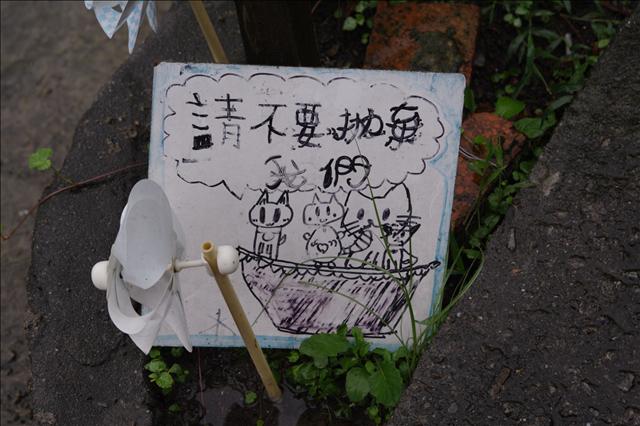 請不要拋棄
我們